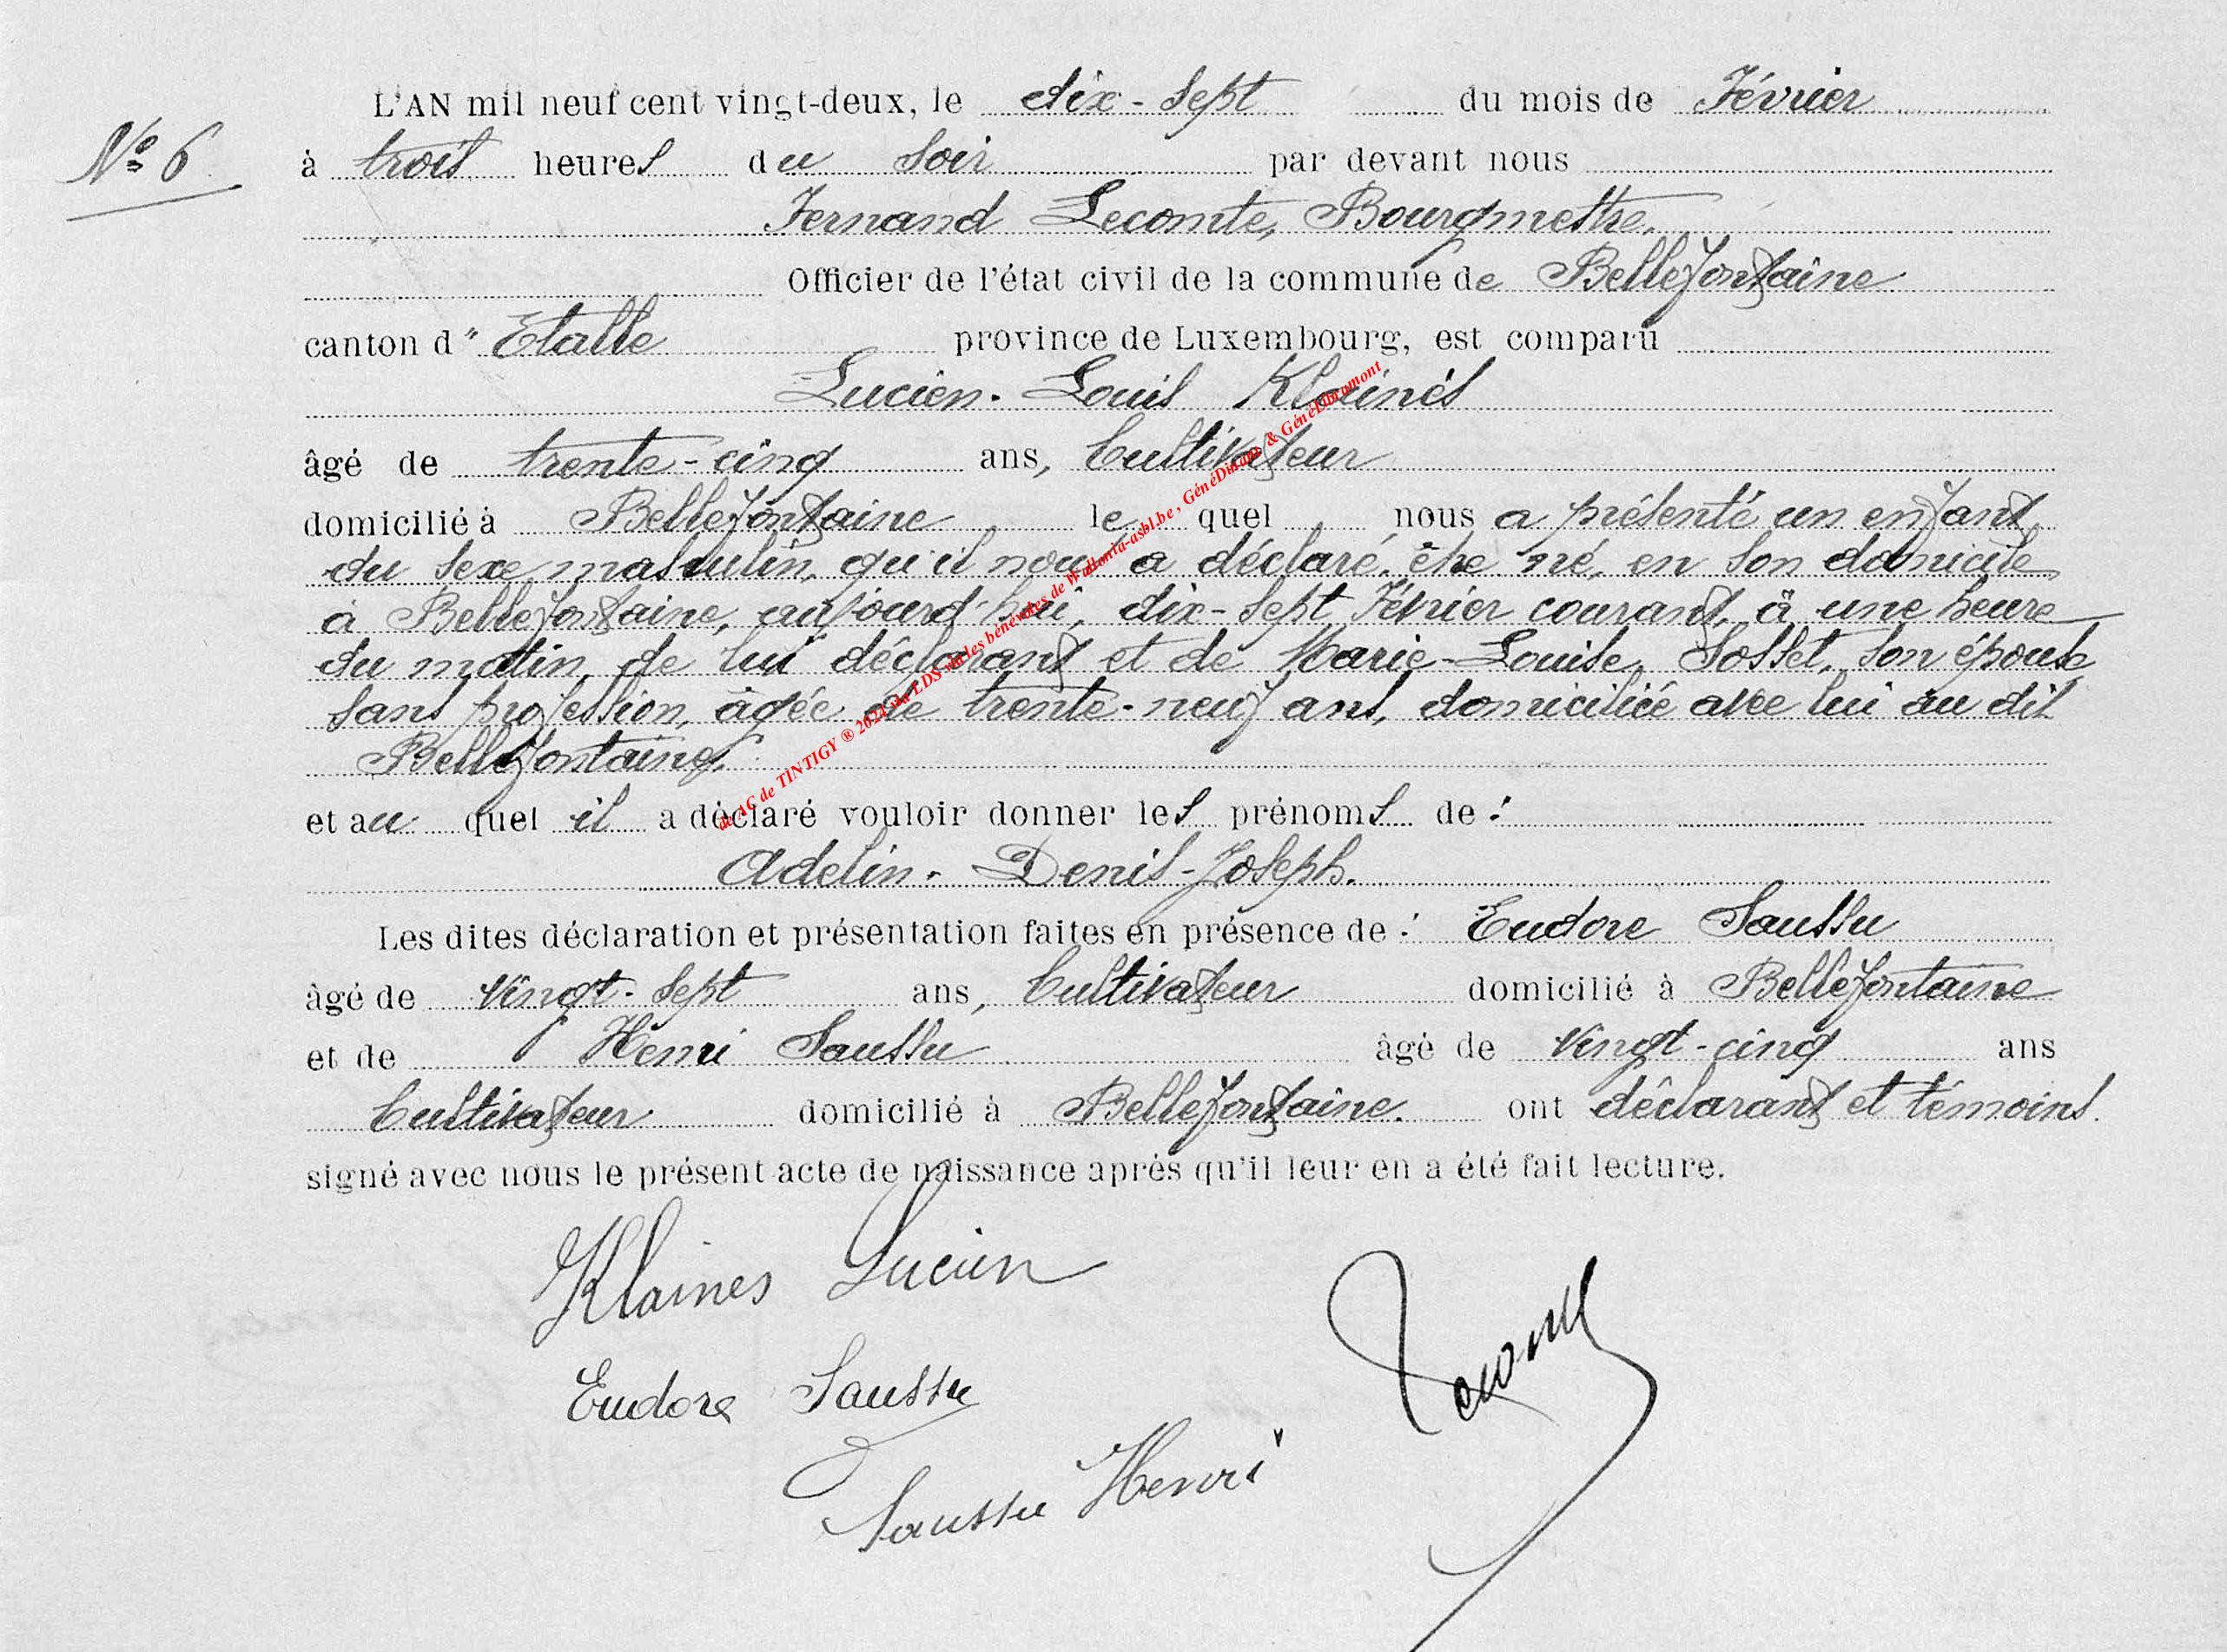 L'AN mil neuf cent vingt-deux, le dix-sept du mois de Février
N° 6
à trois heures du soir par devant nous
Fernand Lecomte, Bourgmestre.
Officier de l'état civil de la commune de Bellefontaine
canton d'' Etalle province de Luxembourg, est comparu
Lucien-Louis Klainés
âgé de trente-cinq ans, Cultivateur
domicilié à Bellefontaine, le quel, nous a présenté un enfant
du sexe masculin, qu'il nous a déclaré, être né, en son domicile
à Bellefontaine, aujourd'hui, dix-sept Février courant, à une heure
du matin, de lui déclarant et de Marie-Louise, Sosset, son épouse
sans profession, âgée de trente-neuf ans, domiciliée avec lui au dit
Bellefontaine,
et au quel il a déclaré vouloir donner les prénoms de :
Adelin-Denis-Joseph.
Les dites déclaration et présentation faites en présence de : Eudore Saussu
âgé de vingt-sept ans, Cultivateur domicilié à Bellefontaine
et de Henri Saussu âgé de vingt-cinq ans
Cultivateur domicilié à Bellefontaine. ont déclarant et témoins.
signé avec nous le présent acte de naissance après qu'il leur en a été fait lecture.
Klaines Lucien
Lecomte
Eudore Saussu
Saussu Henri
de AC de TINTIGY ® 2024 via LDS via les bénévoles de Wallonia-asbl.be, GénéDinant & GénéLibramont